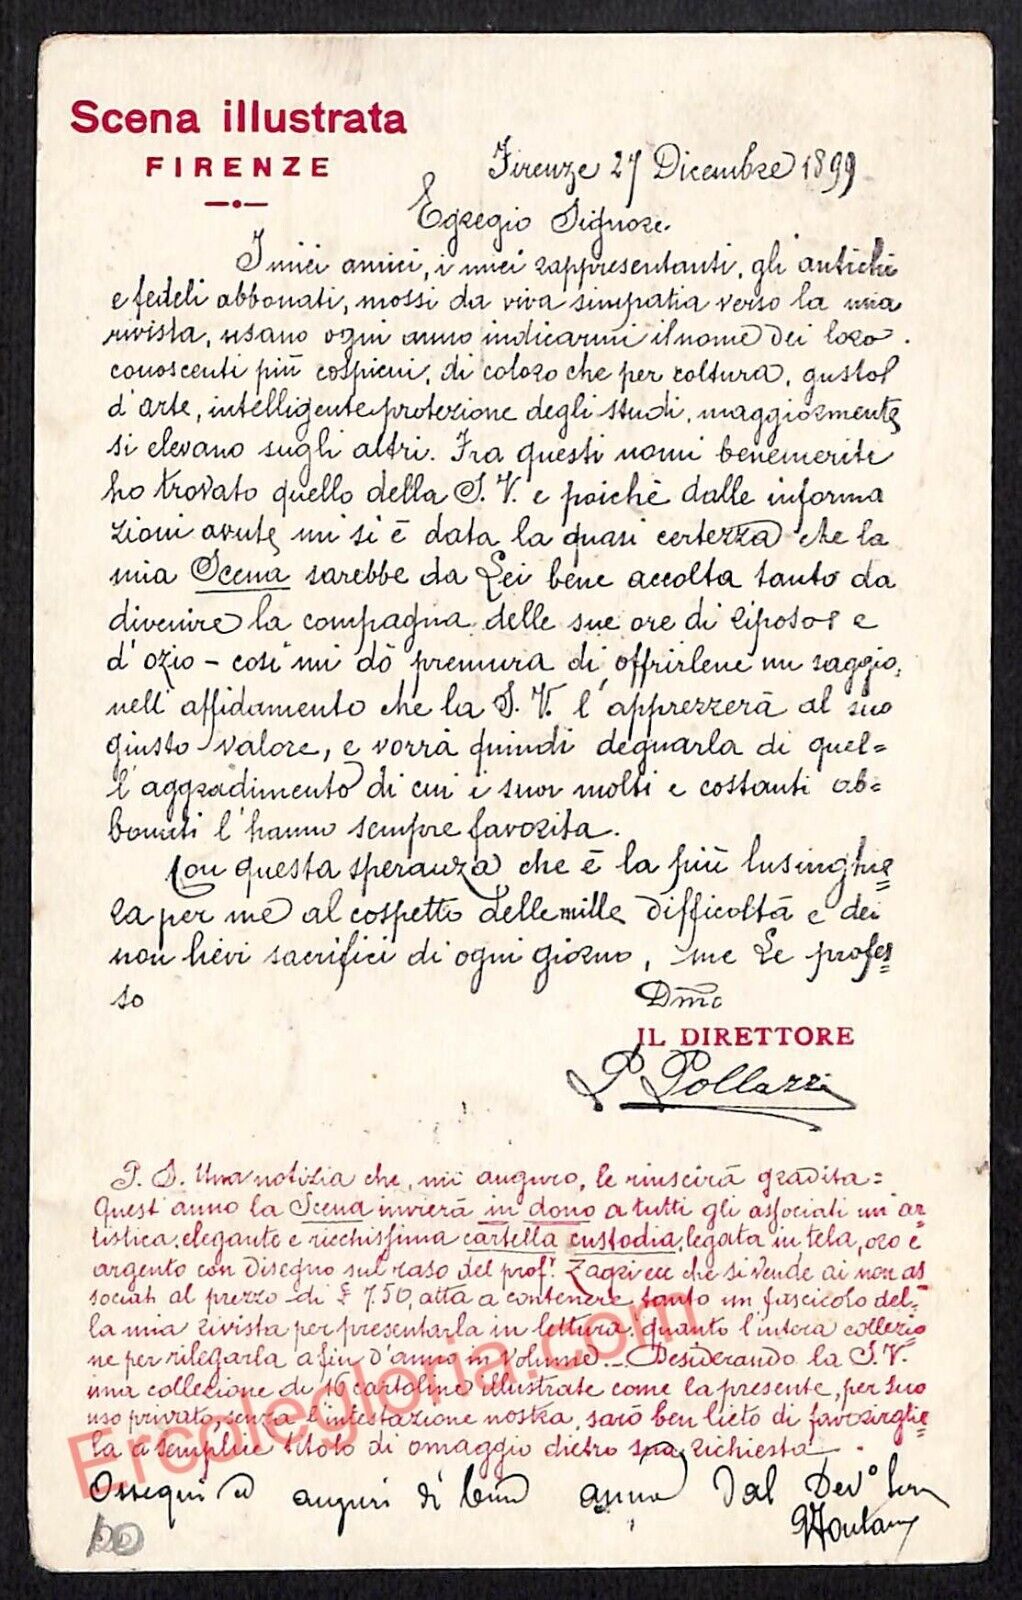 Scena illustrata
FIRENZE
Firenze 27 Dicembre 1899
Egregio Signore.
I miei amici, i miei rappresentanti, gli antichi
e fedeli abbonati, mossi da viva simpatia verso la mia
rivista, usano ogni anno indicarmi il nome dei loro
conoscenti più cospicui, di coloro che per coltura, gusto
d'arte, intelligente protezione degli studi, maggiormente
si elevano sugli altri. Fra questi nomi benemeriti
ho trovato quello della S. V. e poichè dalle informa
zioni avute mi si è data la quasi certezza che la
mia Scena sarebbe da Lei bene accolta tanto da
divenire la compagna delle sue ore di riposo e
d'ozio - così mi dò premura di offrirlene un saggio,
nell'affidamento che la S. V. l'apprezzerà al suo
giusto valore, e vorrà quindi degnarla di quel=
l'aggradimento di cui i suoi molti e costanti ab=
bonati l'hanno sempre favorita.
Con questa speranza che è la più lusinghie=
ra per me al cospetto delle mille difficoltà e dei
non lievi sacrifici di ogni giorno, me Le profes=
so
Dmo
IL DIRETTORE
P. Pollazzi
P. S. Una notizia che, mi auguro, le riuscirà gradita=
Quest'anno la Scena invierà in dono a tutti gli associati un'ar=
tistica, elegante e ricchissima cartella custodia, legata in tela, oro e
argento con disegno sul raso del prof. che si vende ai non as=
sociati al prezzo di £ 7.50, atta a contenere tanto un fascicolo del=
la mia rivista per presentarla in lettura, quanto l'intera collezio
ne per rilegarla a fin d'anno in volume. - Desiderando la S. V.
una collezione di 16 cartoline illustrate come la presente, per suo
uso privato, senza l'intestazione nostra, sarò ben lieto di favorirglie=
la a semplice titolo di omaggio dietro sua richiesta.
Ossequi ed auguri di buon anno dal Devo
100
Ercolegloria.com